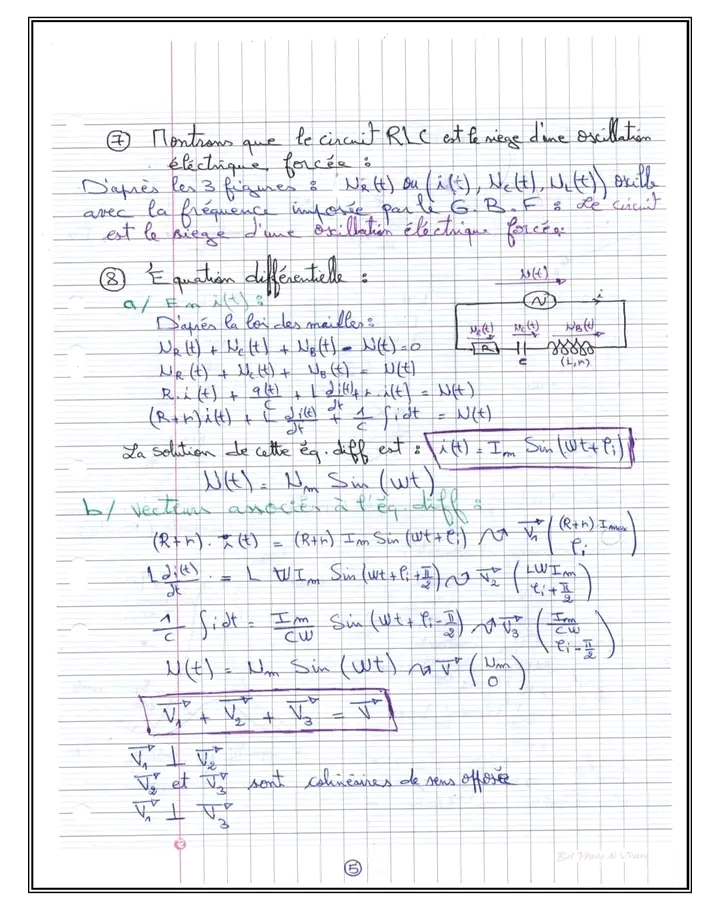 ⑦ Montrons que le circuit RLC est le siège d'une oscillation
électrique forcée :
D'après les 3 figures : u_R(t) ou (i(t), u_c(t), u_L(t)) oscille
avec la fréquence imposée par le G.B.F : Le circuit
est le siège d'une oscillation électrique forcée.
⑧ Equation différentielle :
a/ En i(t) :
D'après la loi des mailles :
u_R(t) + u_c(t) + u_B(t) - u(t) = 0
u_R(t) + u_c(t) + u_B(t) = u(t)
R.i(t) + q(t)/C + L di(t)/dt + r.i(t) = u(t)
(R+r)i(t) + L di(t)/dt + 1/C ∫idt = u(t)
u(t)
N
i
u_R(t) u_c(t) u_B(t)
R
C
(L,r)
La solution de cette éq. diff est : i(t) = I_m Sin(wt+φ_i)
u(t) = u_m Sin(wt)
b/ vecteurs associés à l'éq. diff :
(R+r).i(t) = (R+r) I_m Sin(wt+φ_i) ⇝ V₁→ ((R+r) I_max ; φ_i)
L di(t)/dt = L W I_m Sin(wt+φ_i+π/2) ⇝ V₂→ (LWI_m ; φ_i+π/2)
1/C ∫idt = I_m/CW Sin(wt+φ_i-π/2) ⇝ V₃→ (I_m/CW ; φ_i-π/2)
u(t) = u_m Sin(wt) ⇝ V→ (u_m ; 0)
V₁→ + V₂→ + V₃→ = V→
V₁→ ⊥ V₂→
V₂→ et V₃→ sont colinéaires de sens opposée
V₁→ ⊥ V₃→
⑤